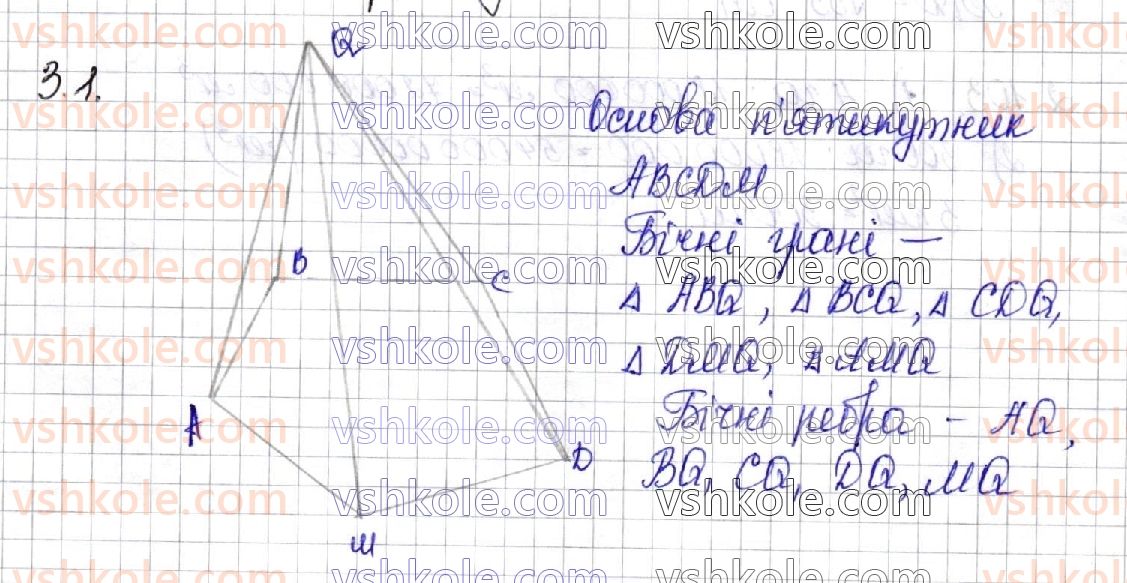 3.1.
Q
Основа п'ятикутник
ABCDM
Бічні грані —
△ ABQ, △ BCQ, △ CDQ,
△ DMQ, △ AMQ
Бічні ребра - AQ,
BQ, CQ, DQ, MQ
B
C
A
D
M
vshkole.com